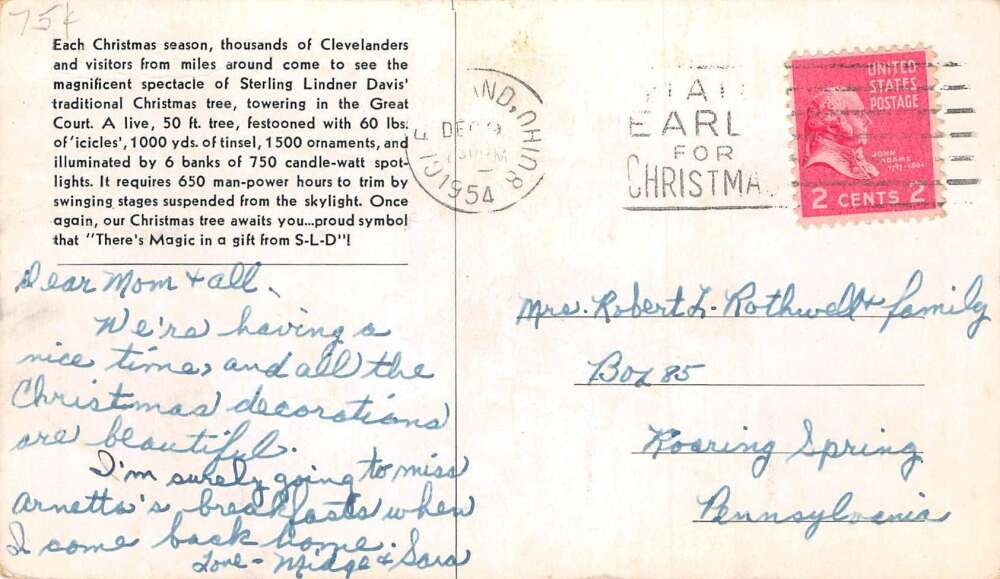 75¢
Each Christmas season, thousands of Clevelanders
and visitors from miles around come to see the
magnificent spectacle of Sterling Lindner Davis'
traditional Christmas tree, towering in the Great
Court. A live, 50 ft. tree, festooned with 60 lbs.
of 'icicles', 1000 yds. of tinsel, 1500 ornaments, and
illuminated by 6 banks of 750 candle-watt spot-
lights. It requires 650 man-power hours to trim by
swinging stages suspended from the skylight. Once
again, our Christmas tree awaits you...proud symbol
that "There's Magic in a gift from S-L-D"!
Dear Mom + all,
We're having a
nice time, and all the
Christmas decorations
are beautiful.
I'm surely going to miss
Arnetta's breakfasts when
I come back home.
Love - Midge & Sara
AND, OHIO
DEC 9
1954
8
EARL
FOR
CHRISTMA
UNITED
STATES
POSTAGE
JOHN
ADAMS
2 CENTS 2
Mrs. Robert L. Rothwell + family
Box 85
Roaring Spring
Pennsylvania